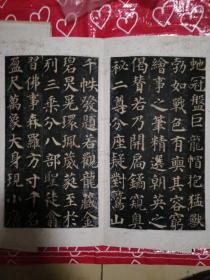 虵冠盤巨龍帽抱猛獸
勃如戰色有奭其容窮
繪事之筆精選朝英之
偈贊若乃開扃鐍窺奧
秘二尊分座疑對鷲山
千帙發題若觀龍藏金
碧炅晃環珮葳蕤至於
列三乘分八部聖徒翕
習佛事森羅方寸千名
盈尺萬象大身現小廣